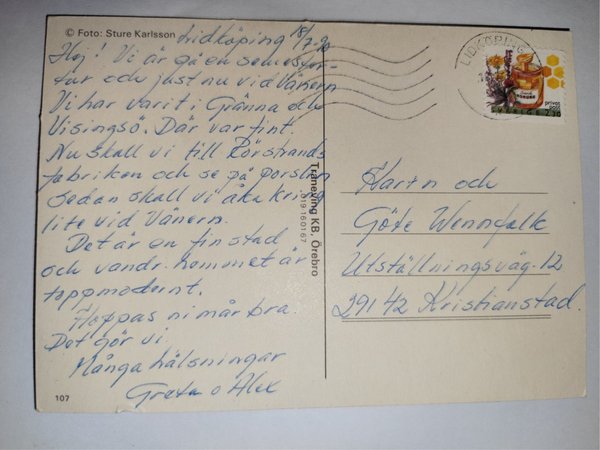 © Foto: Sture Karlsson
Lidköping 18/7-90
Hej! Vi är på en semester-
tur och just nu vid Vänern
Vi har varit i Gränna och
Visingsö. Där var fint.
Nu skall vi till Rörstrands
fabriken och se på porslin
Sedan skall vi åka kring
lite vid Vänern.
Det är en fin stad
och vandr. hemmet är
toppmodernt.
Hoppas ni mår bra.
Det gör vi.
Många hälsningar
Greta o Alex
107
Traneving KB, Örebro
019-16 01 67
LIDKÖPING
privat
post
SVERIGE 2.30
Karin och
Göte Wennfalk
Utställningsväg. 12
291 42 Kristianstad.